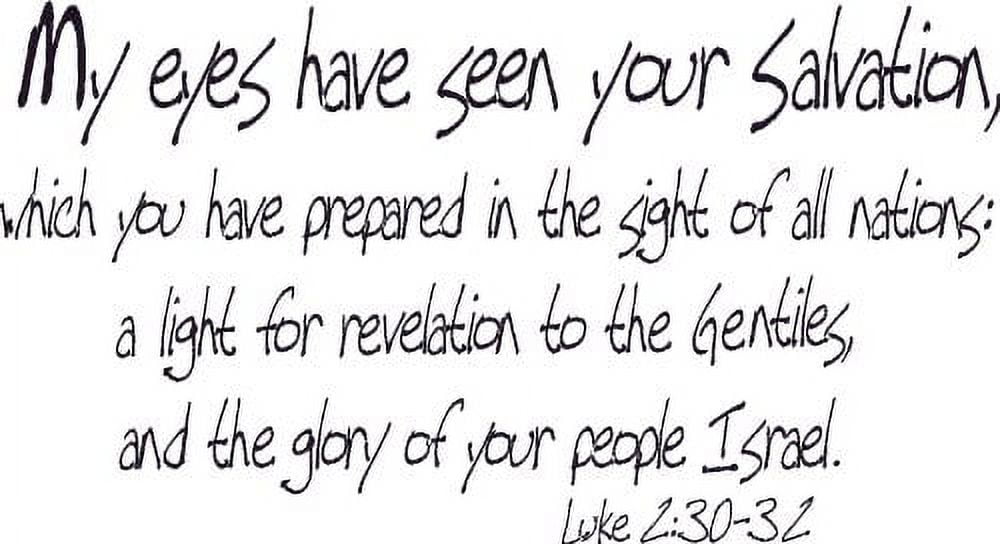 My eyes have seen your Salvation,
which you have prepared in the sight of all nations:
a light for revelation to the Gentiles,
and the glory of your people Israel.
Luke 2:30-32